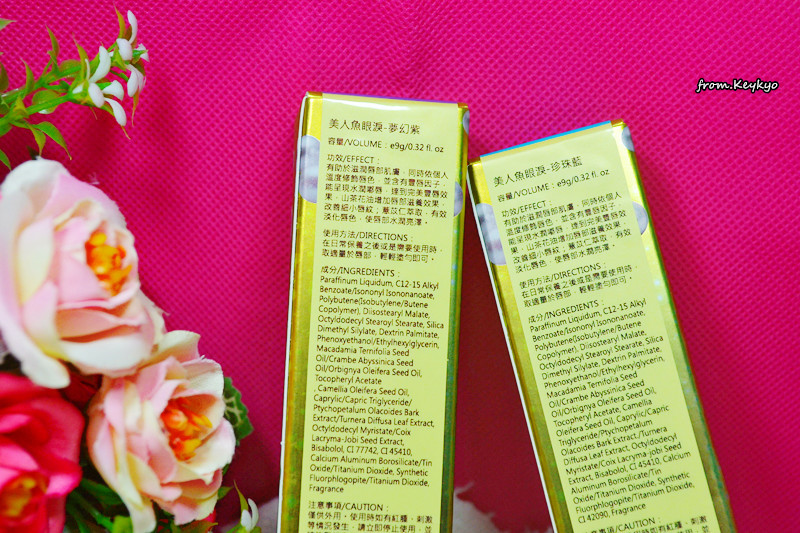 from.Keykyo
美人魚眼淚-夢幻紫
容量/VOLUME：e9g/0.32 fl. oz
功效/EFFECT：
有助於滋潤唇部肌膚，同時依個人
溫度修飾唇色，並含有豐唇因子，
能呈現水潤嘟唇，達到完美豐唇效
果，山茶花油增加唇部滋養效果，
改善細小唇紋；薏苡仁萃取，有效
淡化唇色，使唇部水潤亮澤。
使用方法/DIRECTIONS：
在日常保養之後或是需要使用時，
取適量於唇部，輕輕塗勻即可。
成分/INGREDIENTS：
Paraffinum Liquidum, C12-15 Alkyl
Benzoate/Isononyl Isononanoate,
Polybutene(Isobutylene/Butene
Copolymer), Diisostearyl Malate,
Octyldodecyl Stearoyl Stearate, Silica
Dimethyl Silylate, Dextrin Palmitate,
Phenoxyethanol/Ethylhexylglycerin,
Macadamia Ternifolia Seed
Oil/Crambe Abyssinica Seed
Oil/Orbignya Oleifera Seed Oil,
Tocopheryl Acetate
, Camellia Oleifera Seed Oil,
Caprylic/Capric Triglyceride/
Ptychopetalum Olacoides Bark
Extract/Turnera Diffusa Leaf Extract,
Octyldodecyl Myristate/Coix
Lacryma-Jobi Seed Extract,
Bisabolol, CI 77742, CI 45410,
Calcium Aluminum Borosilicate/Tin
Oxide/Titanium Dioxide, Synthetic
Fluorphlogopite/Titanium Dioxide,
Fragrance
注意事項/CAUTION：
僅供外用。使用時如有紅腫，刺激
等情況發生，請立即停止使用，並
美人魚眼淚-珍珠藍
容量/VOLUME：e9g/0.32 fl. oz
功效/EFFECT：
有助於滋潤唇部肌膚，同時依個人
溫度修飾唇色，並含有豐唇因子，
能呈現水潤嘟唇，達到完美豐唇效
果，山茶花油增加唇部滋養效果，
改善細小唇紋；薏苡仁萃取，有效
淡化唇色，使唇部水潤亮澤。
使用方法/DIRECTIONS：
在日常保養之後或是需要使用時，
取適量於唇部，輕輕塗勻即可。
成分/INGREDIENTS：
Paraffinum Liquidum, C12-15 Alkyl
Benzoate/Isononyl Isononanoate,
Polybutene(Isobutylene/Butene
Copolymer), Diisostearyl Malate,
Octyldodecyl Stearoyl Stearate, Silica
Dimethyl Silylate, Dextrin Palmitate,
Phenoxyethanol/Ethylhexylglycerin,
Macadamia Ternifolia Seed
Oil/Crambe Abyssinica Seed
Oil/Orbignya Oleifera Seed Oil,
Tocopheryl Acetate, Camellia
Oleifera Seed Oil, Caprylic/Capric
Triglyceride/Ptychopetalum
Olacoides Bark Extract/Turnera
Diffusa Leaf Extract, Octyldodecyl
Myristate/Coix Lacryma-jobi Seed
Extract, Bisabolol, CI 45410, Calcium
Aluminum Borosilicate/Tin
Oxide/Titanium Dioxide, Synthetic
Fluorphlogopite/Titanium Dioxide,
CI 42090, Fragrance
注意事項/CAUTION：